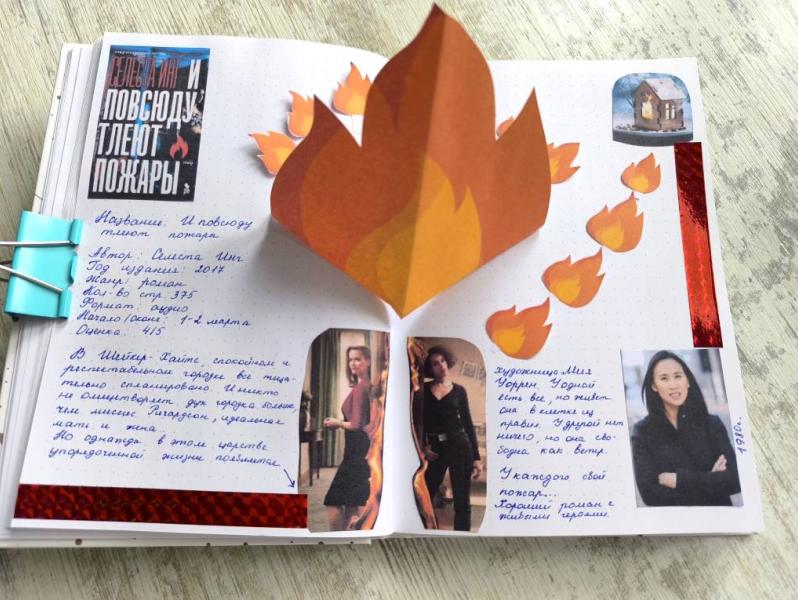 СЕЛЕСТА ИНГ И
ПОВСЮДУ
ТЛЕЮТ
ПОЖАРЫ
Название: И повсюду
тлеют пожары
Автор: Селеста Инг
Год издания: 2017
Жанр: роман
Кол-во стр: 375
Формат: аудио
Начало/оконч: 1-2 марта
Оценка: 4/5
В Шейкер-Хайтс, спокойном и
респектабельном городке все тща-
тельно спланировано. И никто
не олицетворяет дух городка больше,
чем миссис Ричардсон, идеальная
мать и жена.
Но однажды в этом царстве
упорядоченной жизни появляется
художница Мия
Уоррен. У одной
есть все, но живет
она в клетке из
правил. У другой нет
ничего, но она сво-
бодна как ветер.
У каждого свой
пожар...
Хороший роман с
живыми героями.
1980г.